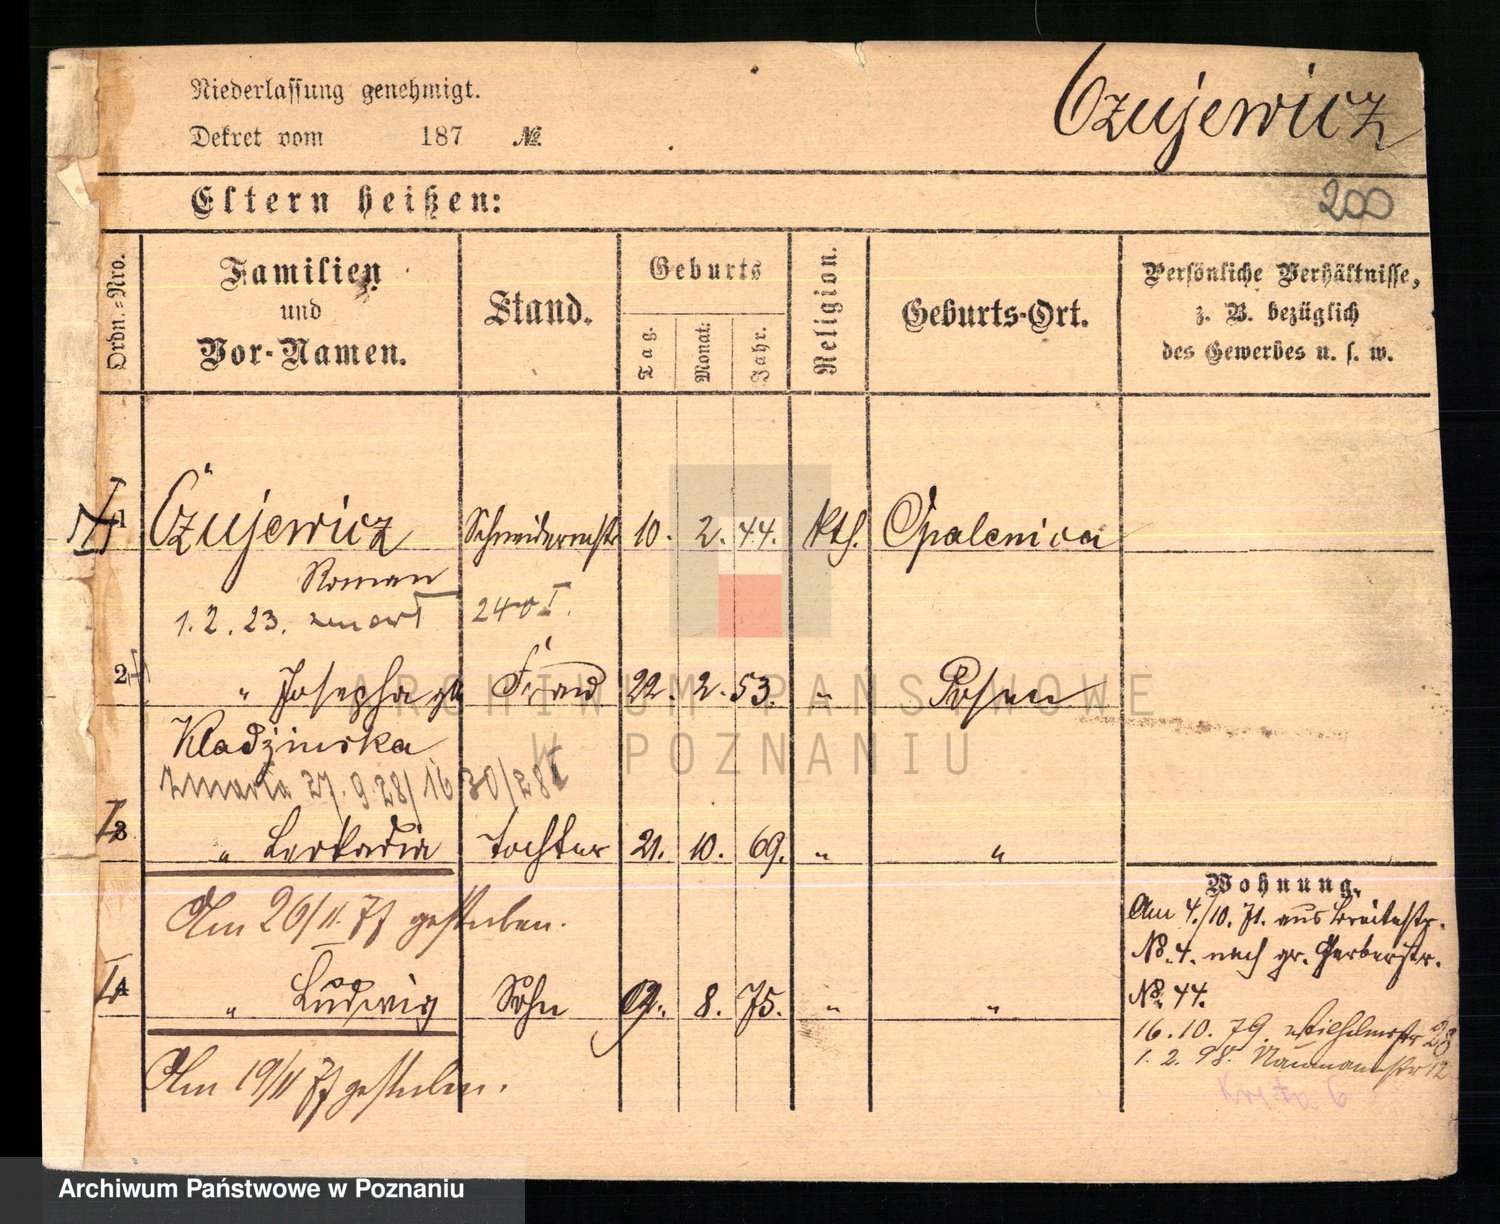 Niederlassung genehmigt.
Dekret vom 187 №
Czujewicz
Eltern heißen:
200
Ordn.-Nro.
Familien
und
Vor-Namen.
Stand.
Geburts
Tag.
Monat.
Jahr.
Religion.
Geburts-Ort.
Persönliche Verhältnisse,
z. B. bezüglich
des Gewerbes u. s. w.
1 Czujewicz Schneidermstr 10. 2. 44. kth. Opalenica
Roman
1. 2. 23. zmarł 240 I.
2 " Josepha Frau 22. 2. 53. " Posen
Kladzinska
zmarła 27. 9. 28/
3 " Leokadia Tochter 21. 10. 69. " "
Am 26/11. 77 gestorben.
4 " Ludwig Sohn 8. 75. " "
Am 19/11 77 gestorben.
Wohnung.
Am 4./10. 71. aus Breitestr.
No. 4. nach gr. Gerberstr.
No. 44.
16. 10. 79. Wilhelmstr 28
1. 2. 98. Naumannstr 12
Kręta 6
ARCHIWUM PAŃSTWOWE
W POZNANIU
Archiwum Państwowe w Poznaniu